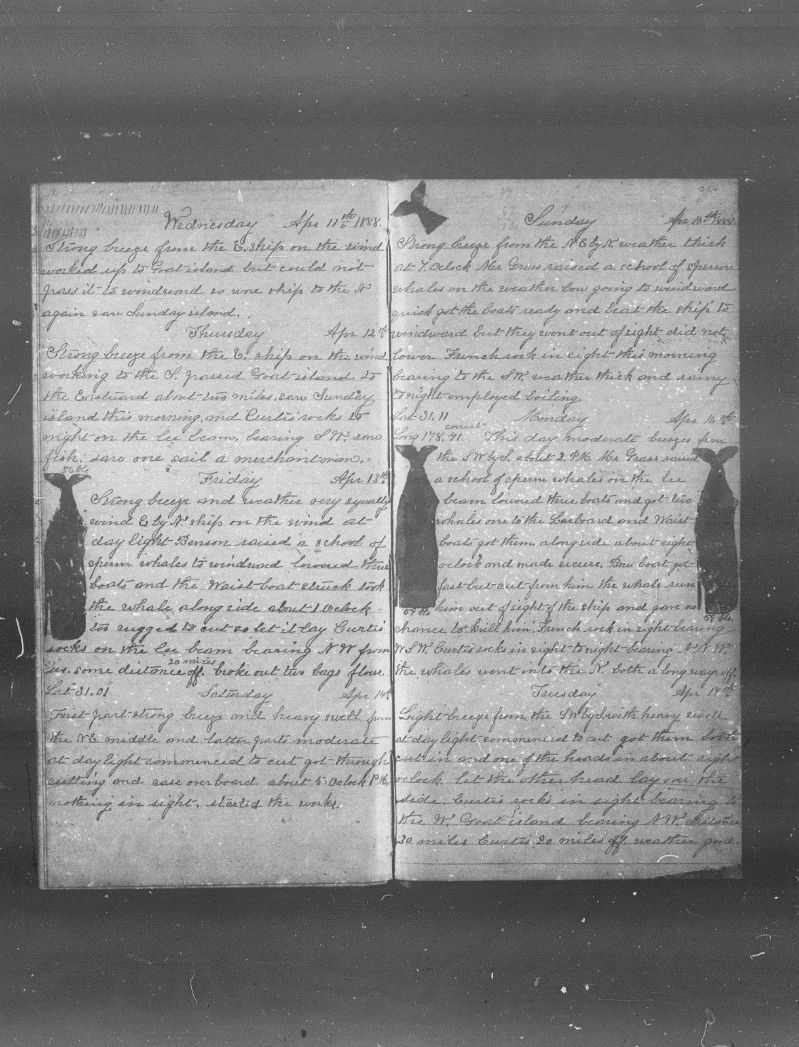 Wednesday Apr 11th 1888.
Strong breeze from the E. ship on the wind
worked up to Goat island but could not
pass it to windward so wore ship to the N
again saw Sunday island.
Thursday Apr 12th
Strong breeze from the E. ship on the wind
working to the S. passed Goat island to
the Eastward about two miles. saw Sunday
island this morning, and Curtis rocks to
night on the lee beam, bearing S W. saw
fish. saw one sail a merchantman.
56 bls
Friday Apr 13th
Strong breeze and weather very squally
wind E by N. ship on the wind at
day light Benson raised a school of
sperm whales to windward lowered three
boats and the Waist boat struck took
the whale along side about 1 Oclock
too rugged to cut so let it lay Curtis
rocks on the lee beam bearing N W from
us. some distance off. broke out two bags flour.
20 miles
Lat 31.01 Saturday Apr 14th
First part strong breeze and heavy swell from
the N E. middle and latter parts moderate
at day light commenced to cut got through
cutting and case overboard about 5 Oclock P.M.
nothing in sight. started the works.
Sunday Apr 15th 1888
Strong breeze from the N E by N. weather thick
at 7 Oclock Mr Gross raised a school of sperm
whales on the weather bow going to windward
quick got the boats ready and beat the ship to
windward but they went out of sight did not
lower French rock in sight this morning
bearing to the S W. weather thick and rainy
to night employed boiling.
Lat 31.11 Monday Apr 16th
Long 178.41 This day moderate breezes from
the S W by S. about 2 P.M. Mr Gross raised
a school of sperm whales on the lee
beam lowered three boats and got two
whales one to the Larboard and Waist
boats got them along side about eight
oclock and made secure. Bow boat got
fast but cut from him the whale run
him out of sight of the ship and gave no
54 bls 58 bls
chance to kill him, French rock in sight bearing
W S W. Curtis rocks in sight to night bearing N. N W.
the whales went into the N. both a long ways off.
Tuesday Apr 17th
Light breeze from the S W by S with heavy swell
at day light commenced to cut got them both
cut in and one of the heads in about eight
oclock. let the other head lay over the
side. Curtis rocks in sight bearing to
the W. Goat island bearing N W distance
30 miles Curtis 20 miles off. weather good.